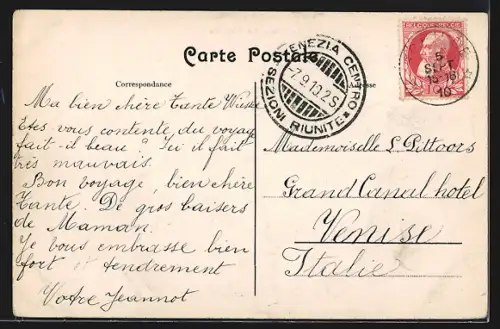 Carte Postale
BELGIQUE-BELGIË
VENEZIA CENTRO
-7.9.10.2S
SEZIONI RIUNITE
5
SEPT
15-16
10
Correspondance
Ma bien chère Tante Wieske
Êtes vous contente du voyage
fait-il beau? Ici il fait
très mauvais.
Bon voyage, bien chère
Tante. De gros baisers
de Maman.
Je vous embrasse bien
fort et tendrement
Votre Jeannot
Mademoiselle L Pittoors
Grand Canal hotel
Venise
Italie